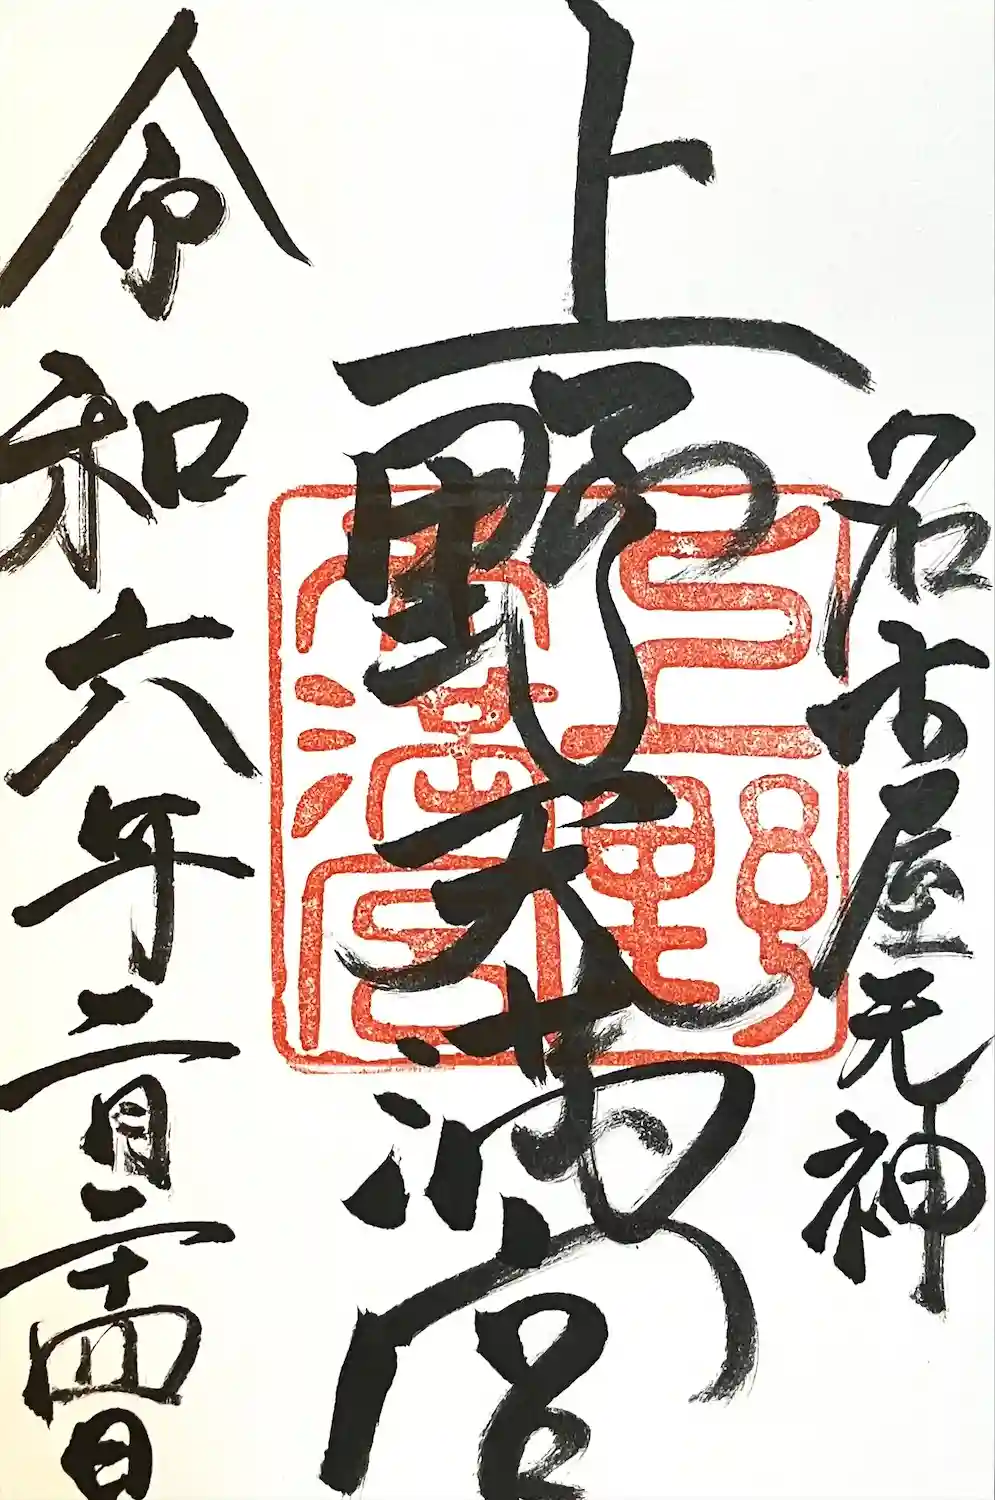 名古屋天神
上野天満宮
上野
天満宮
令和六年二月二十四日